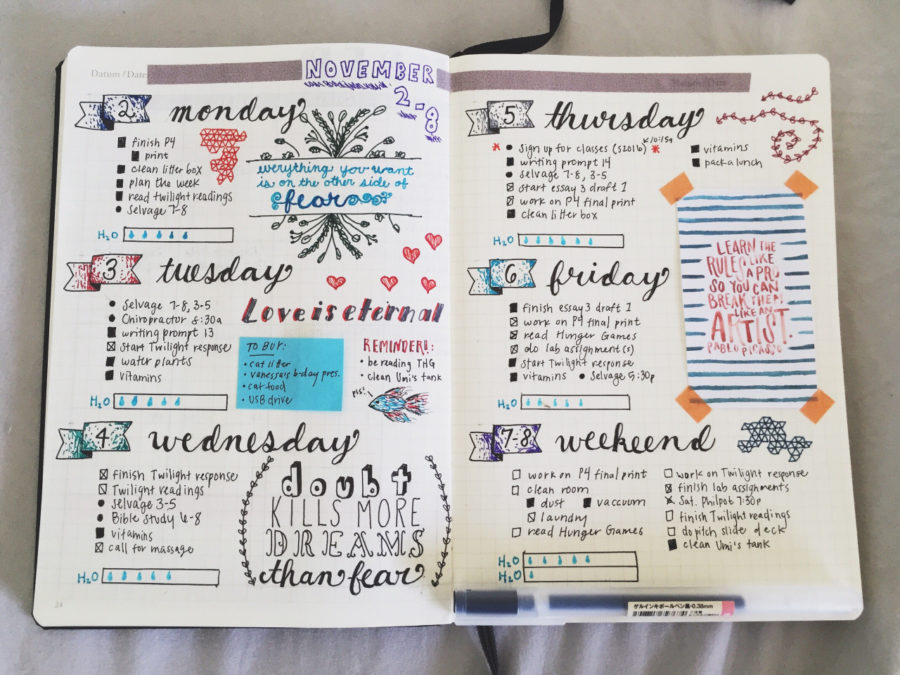 Datum / Date:
NOVEMBER
2-8
2 monday
finish P4
print
clean litter box
plan the week
read twilight readings
Selvage 7-8
H2O
everything you want
is on the other side of
fear
3 tuesday
Selvage 7-8, 3-5
Chiropractor 8:30a
writing prompt 13
Start Twilight response
water plants
vitamins
H2O
Love is eternal
TO BUY:
cat litter
vanessa's b-day pres.
cat food
USB drive
REMINDER!:
be reading THG
clean Umi's tank
4 wednesday
finish Twilight response
Twilight readings
Selvage 3-5
Bible Study 6-8
vitamins
call for massage
H2O
doubt
KILLS MORE
DREAMS
than fear
24
5 thursday
Sign up for classes (S2016)
writing prompt 14
Selvage 7-8, 3-5
start essay 3 draft 1
work on P4 final print
clean litter box
vitamins
pack a lunch
H2O
6 friday
finish essay 3 draft 1
work on P4 final print
read Hunger Games
do lab assignment(s)
start Twilight response
vitamins • Selvage 5:30p
H2O
LEARN THE
RULES LIKE
A PRO
SO YOU CAN
BREAK THEM
LIKE AN
ARTIST.
PABLO PICASSO
7-8 weekend
work on P4 final print
clean room
dust
vaccuom
laundry
read Hunger Games
work on Twilight response
finish lab assignments
Sat. Philpot 7:30p
finish Twilight readings
do pitch slide deck
clean Umi's tank
H2O
H2O
ゲルインキボールペン黒・0.38mm